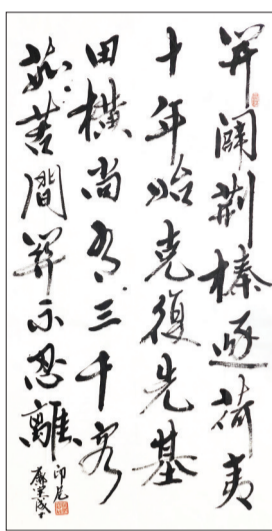 開闢荊榛逐荷夷
十年始克復先基
田橫尚有三千客
茹苦間關不忍離
印尼